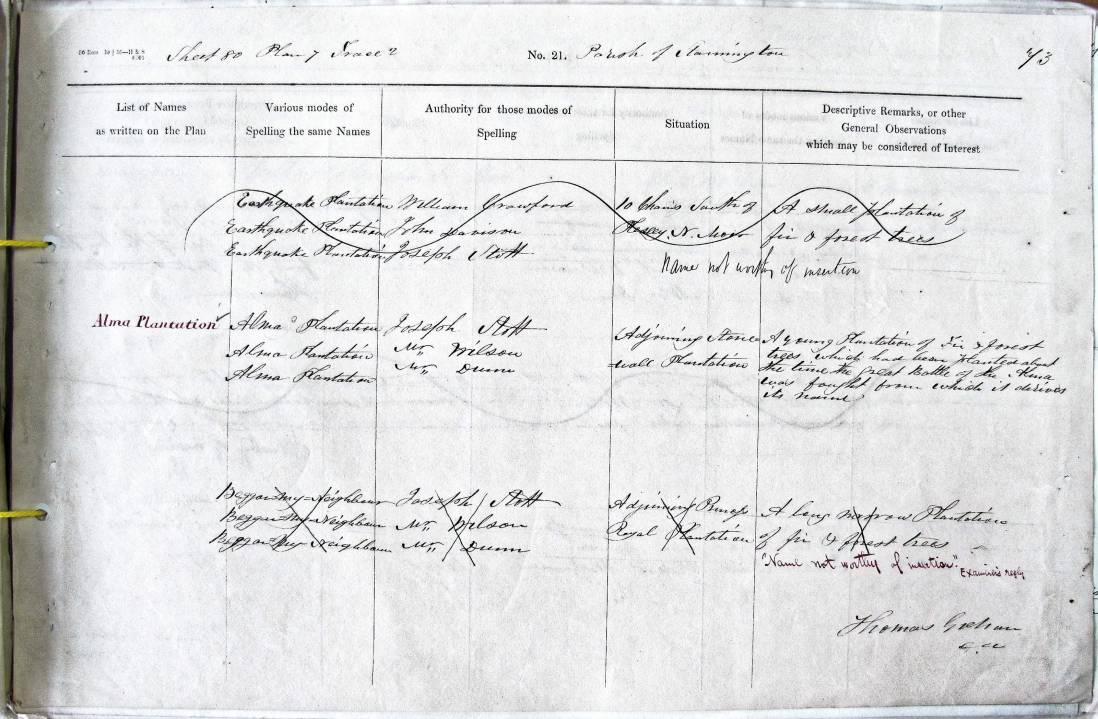 Sheet 80 Plan 7 Trace 2 No. 21. Parish of Stannington 73
List of Names as written on the Plan
Various modes of Spelling the same Names
Authority for those modes of Spelling
Situation
Descriptive Remarks, or other General Observations which may be considered of Interest
Earthquake Plantation William Crawford 10 Chains South of A small plantation of
Earthquake Plantation John Davison N. Moor fir & forest trees
Earthquake Plantation Joseph Stott
Name not worthy of insertion
Alma Plantation Alma Plantation Joseph Stott Adjoining Stone A young Plantation of Fir & forest
Alma Plantation Mr. Wilson wall Plantation trees which had been planted about
Alma Plantation Mr. Dunn the time the great Battle of the Alma
was fought from which it derives
its name
Beggar-my-Neighbour Joseph Stott Adjoining Princess A long narrow Plantation
Beggar-My-Neighbour Mr. Wilson Royal Plantation of fir & forest trees
Beggar-My-Neighbour Mr. Dunn
"Name not worthy of insertion." Examiner's reply
Thomas Graham
C.A